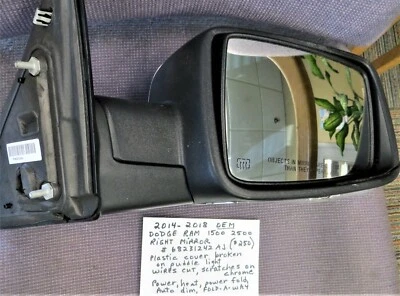 OBJECTS IN MIRROR
THAN THEY
2014-2018 OEM
DODGE RAM 1500 2500
RIGHT MIRROR
# 68281242AJ ($250)
Plastic cover broken
on puddle light
WIRES CUT, SCRATCHES on
chrome
Power, heat, power fold,
Auto dim, FOLD-A-WAY